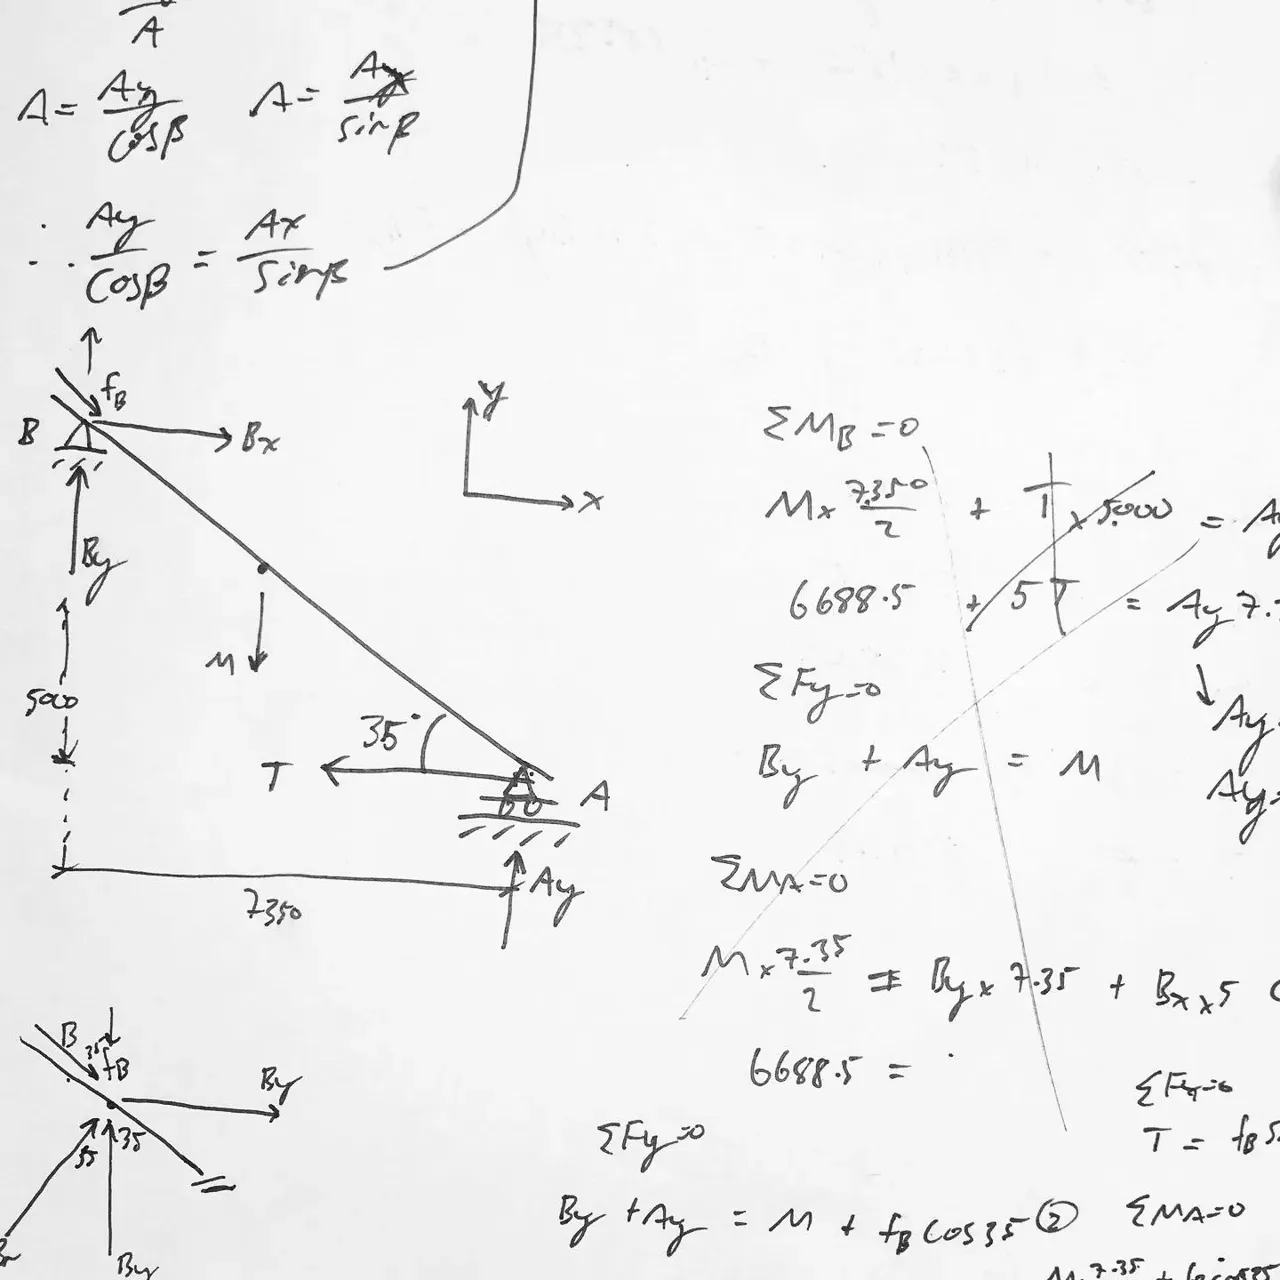 A
A = Ay / cosβ    A = Ay / sinβ
∴ Ay / cosβ = Ax / sinβ
fB
B
Bx
By
M
5000
35°
T
A
Ay
7350
y
x
ΣMB = 0
M x 7350 / 2 + T x 5000 = Ay
6688.5 + 5T = Ay 7.
ΣFy = 0
By + Ay = M
Ay
Ay=
ΣMA = 0
M x 7.35 / 2 = By x 7.35 + Bx x 5
6688.5 =
B
35
fB
By
35
35
By
ΣFy = 0
By + Ay = M + fB cos 35 ②
ΣFy = 0
T = fB s
ΣMA = 0
M 7.35 +